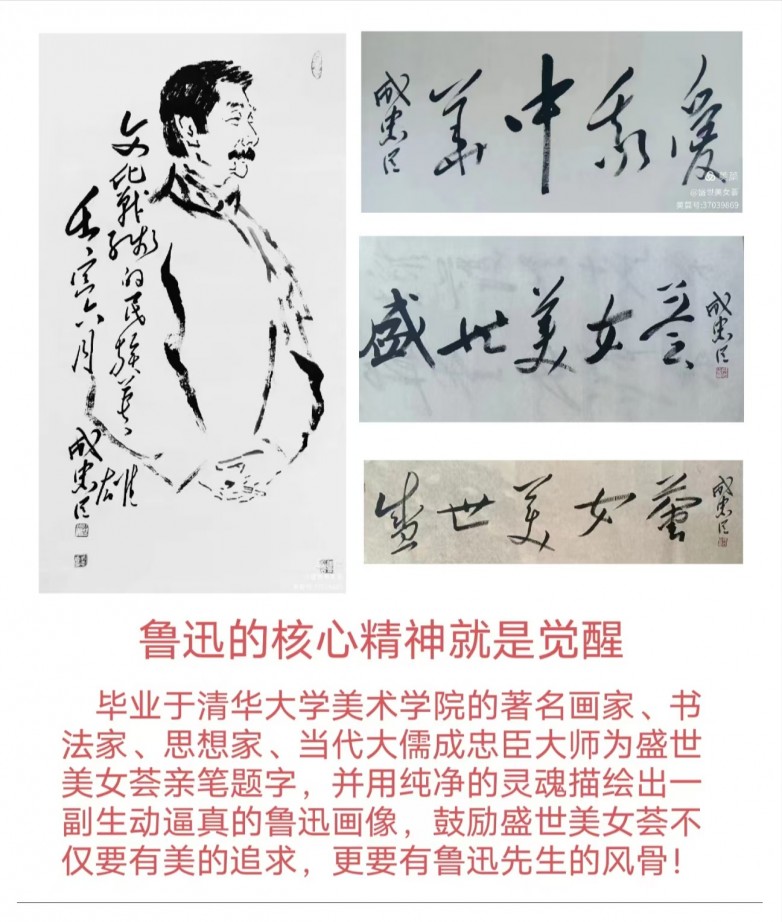 文化戰線的民族英雄
壬寅六月
成忠臣
愛我中華
成忠臣
美篇
@盛世美女荟
美篇号:37039669
盛世美女荟
成忠臣
盛世美女薈
成忠臣
鲁迅的核心精神就是觉醒
毕业于清华大学美术学院的著名画家、书
法家、思想家、当代大儒成忠臣大师为盛世
美女荟亲笔题字，并用纯净的灵魂描绘出一
副生动逼真的鲁迅画像，鼓励盛世美女荟不
仅要有美的追求，更要有鲁迅先生的风骨！